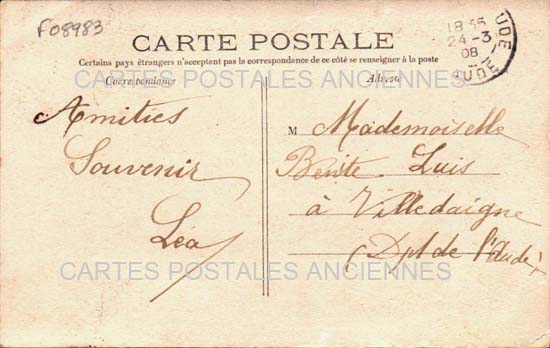 F08983
CARTE POSTALE
Certains pays étrangers n'acceptant pas la correspondance de ce côté se renseigner à la poste
Correspondance
Adresse
18 45
24-3
08
AUDE
CARTES POSTALES ANCIENNES
Amitiés
Souvenir
Léa
M Mademoiselle
Benite Luis
à Villedaigne
(Dpt de l'Aude)
CARTES POSTALES ANCIENNES